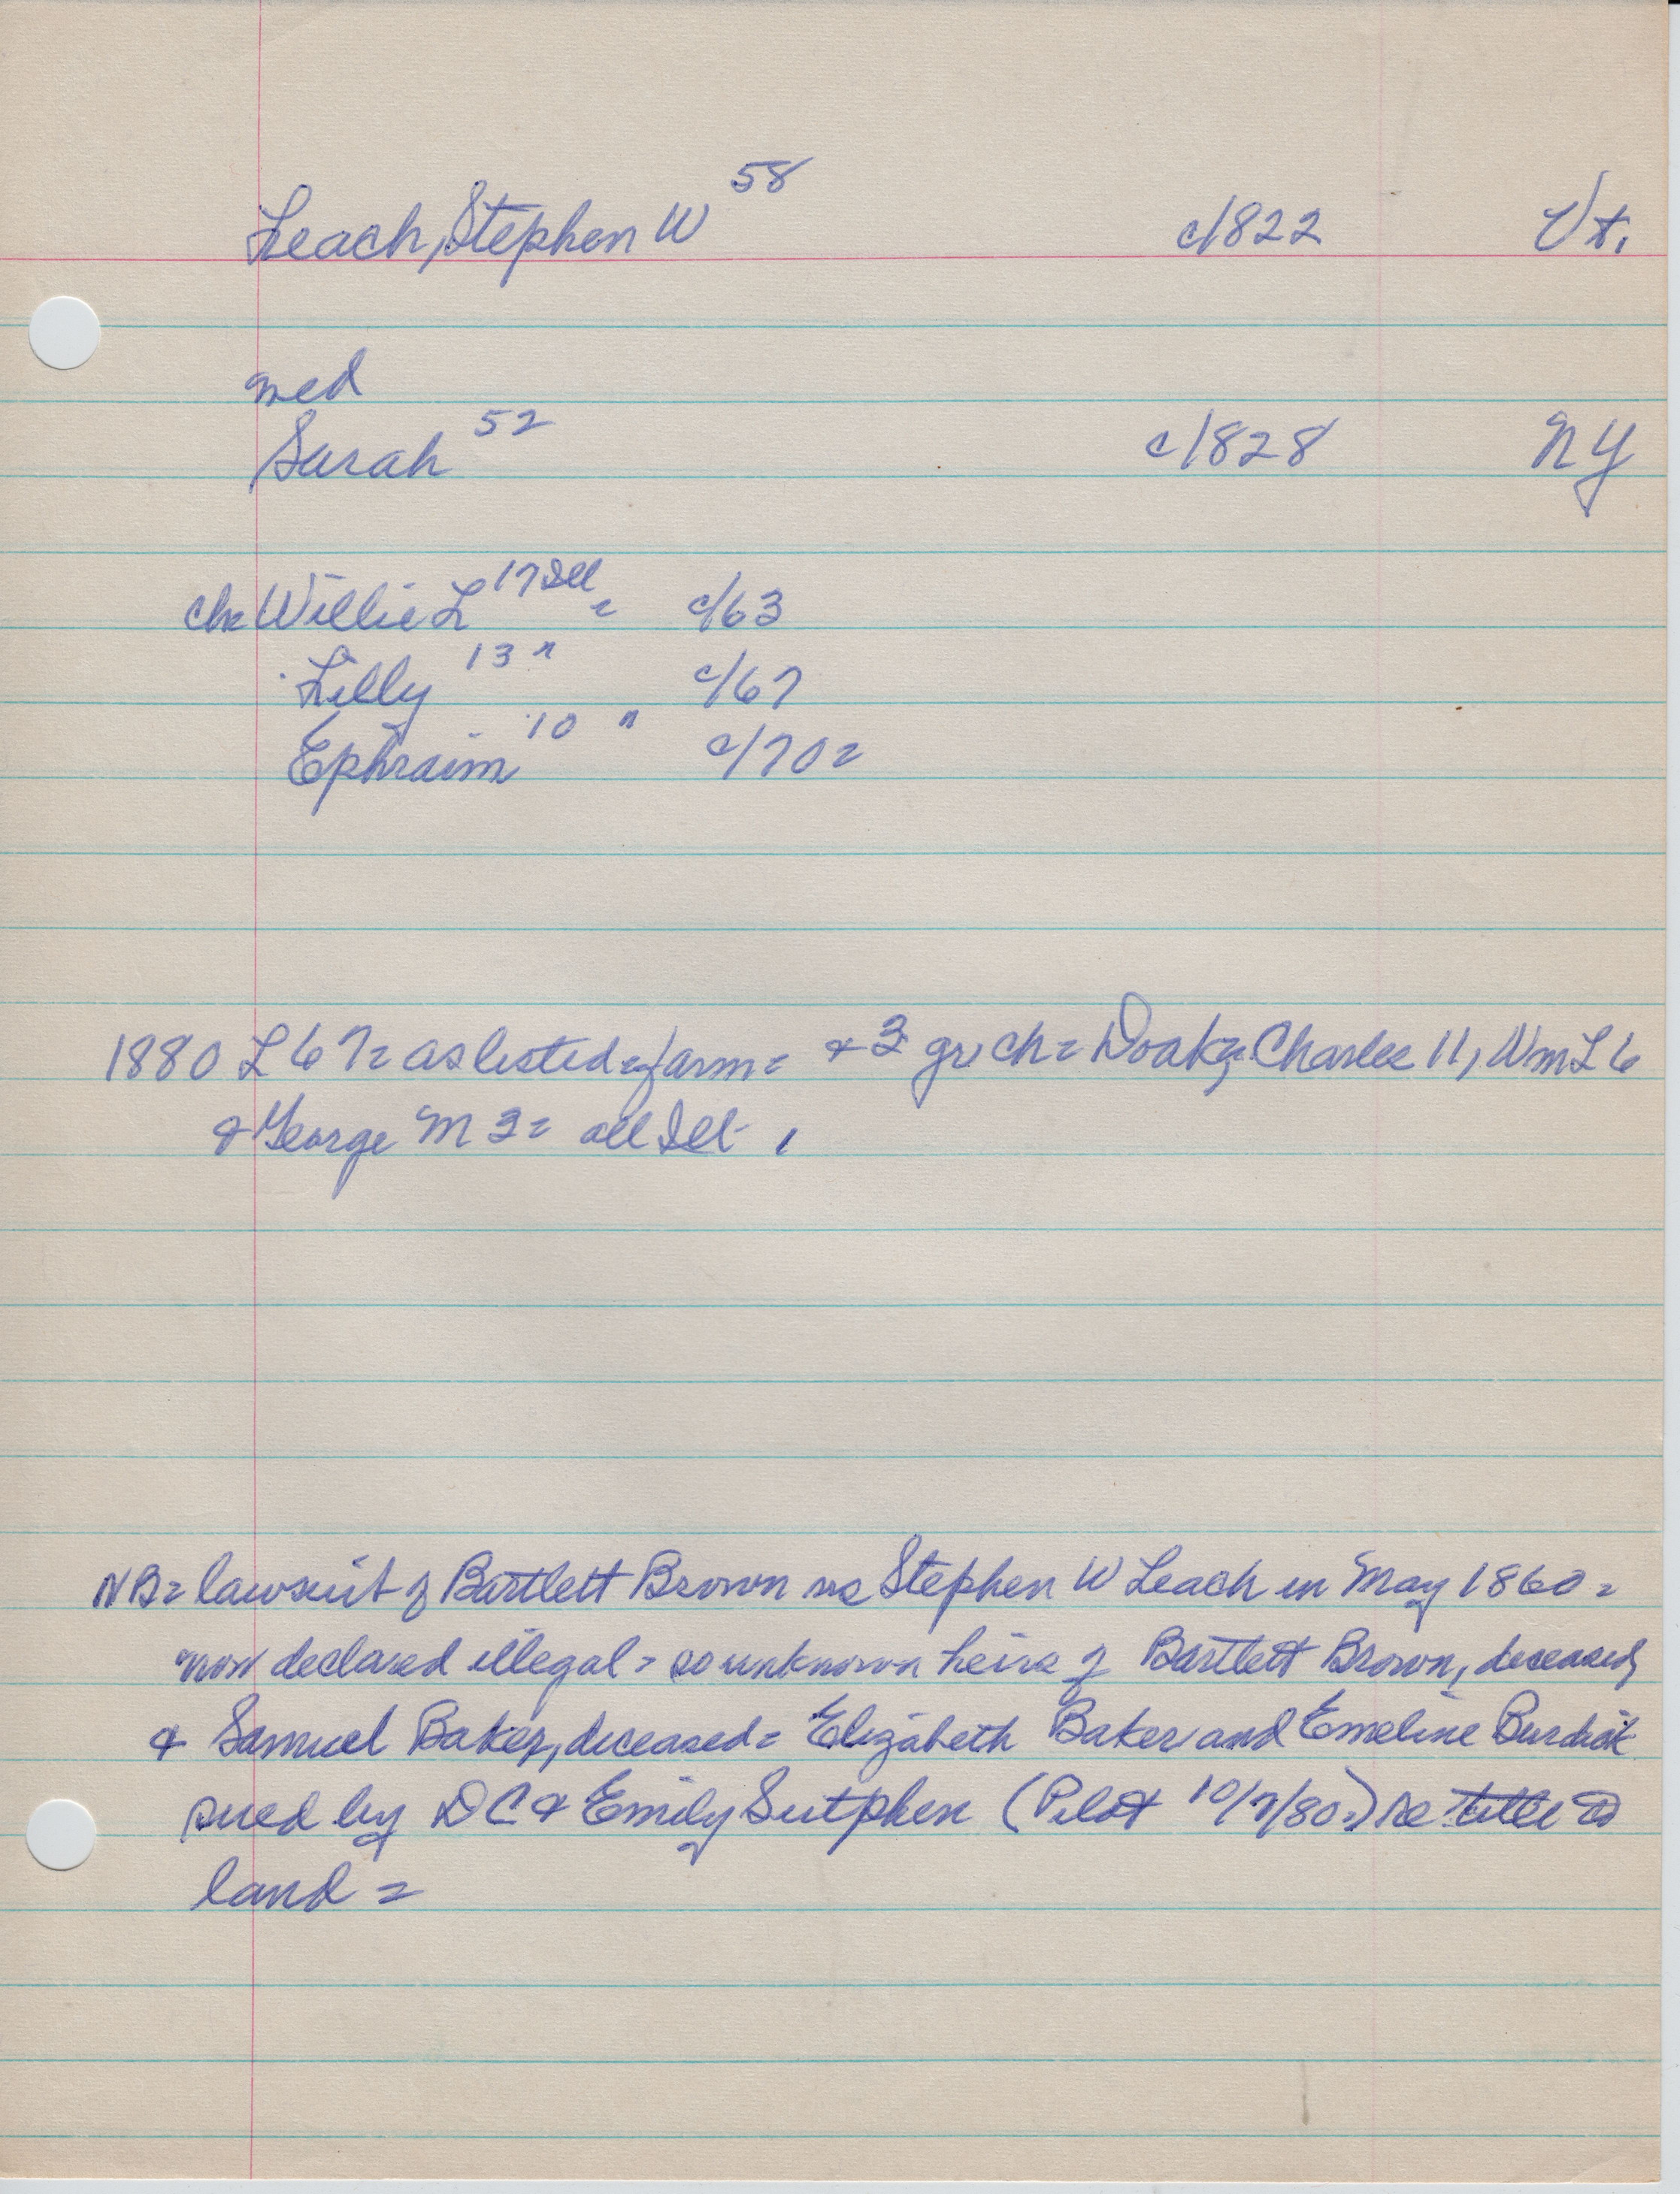 Leach, Stephen W 58 c/1822 Vt.
med
Sarah 52 c/1828 NY
ch= Willie L 17 Ill = c/63
Lilly 13 " c/67
Ephraim 10 " c/70=
1880 L 67= as listed= farm= + 3 gr ch= Doak, Charles 11, Wm L 6
& George M 3= all Ill.
NB= lawsuit of Bartlett Brown vs Stephen W Leach in May 1860=
now declared illegal= so unknown heirs of Bartlett Brown, deceased,
& Samuel Baker, deceased= Elizabeth Baker and Emeline Burdick
sued by DC & Emily Sutphen (Pilot 10/7/80=) re title to
land =